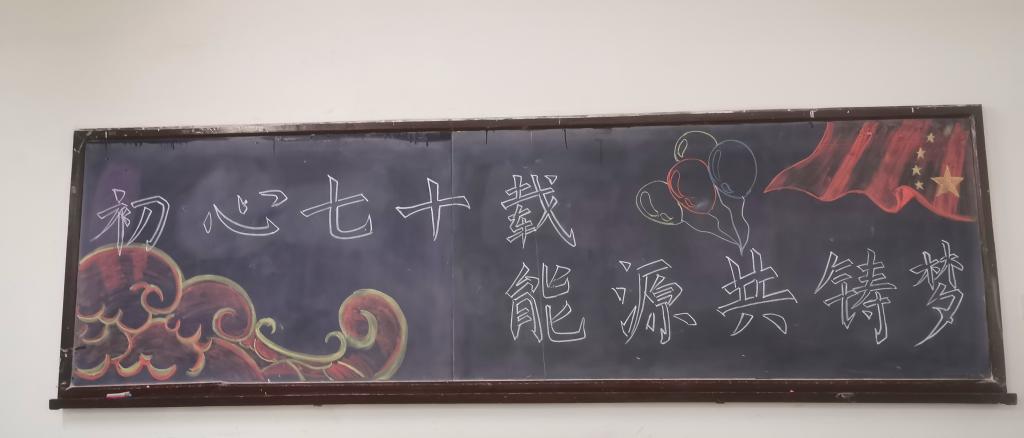 初心七十载
能源共铸梦